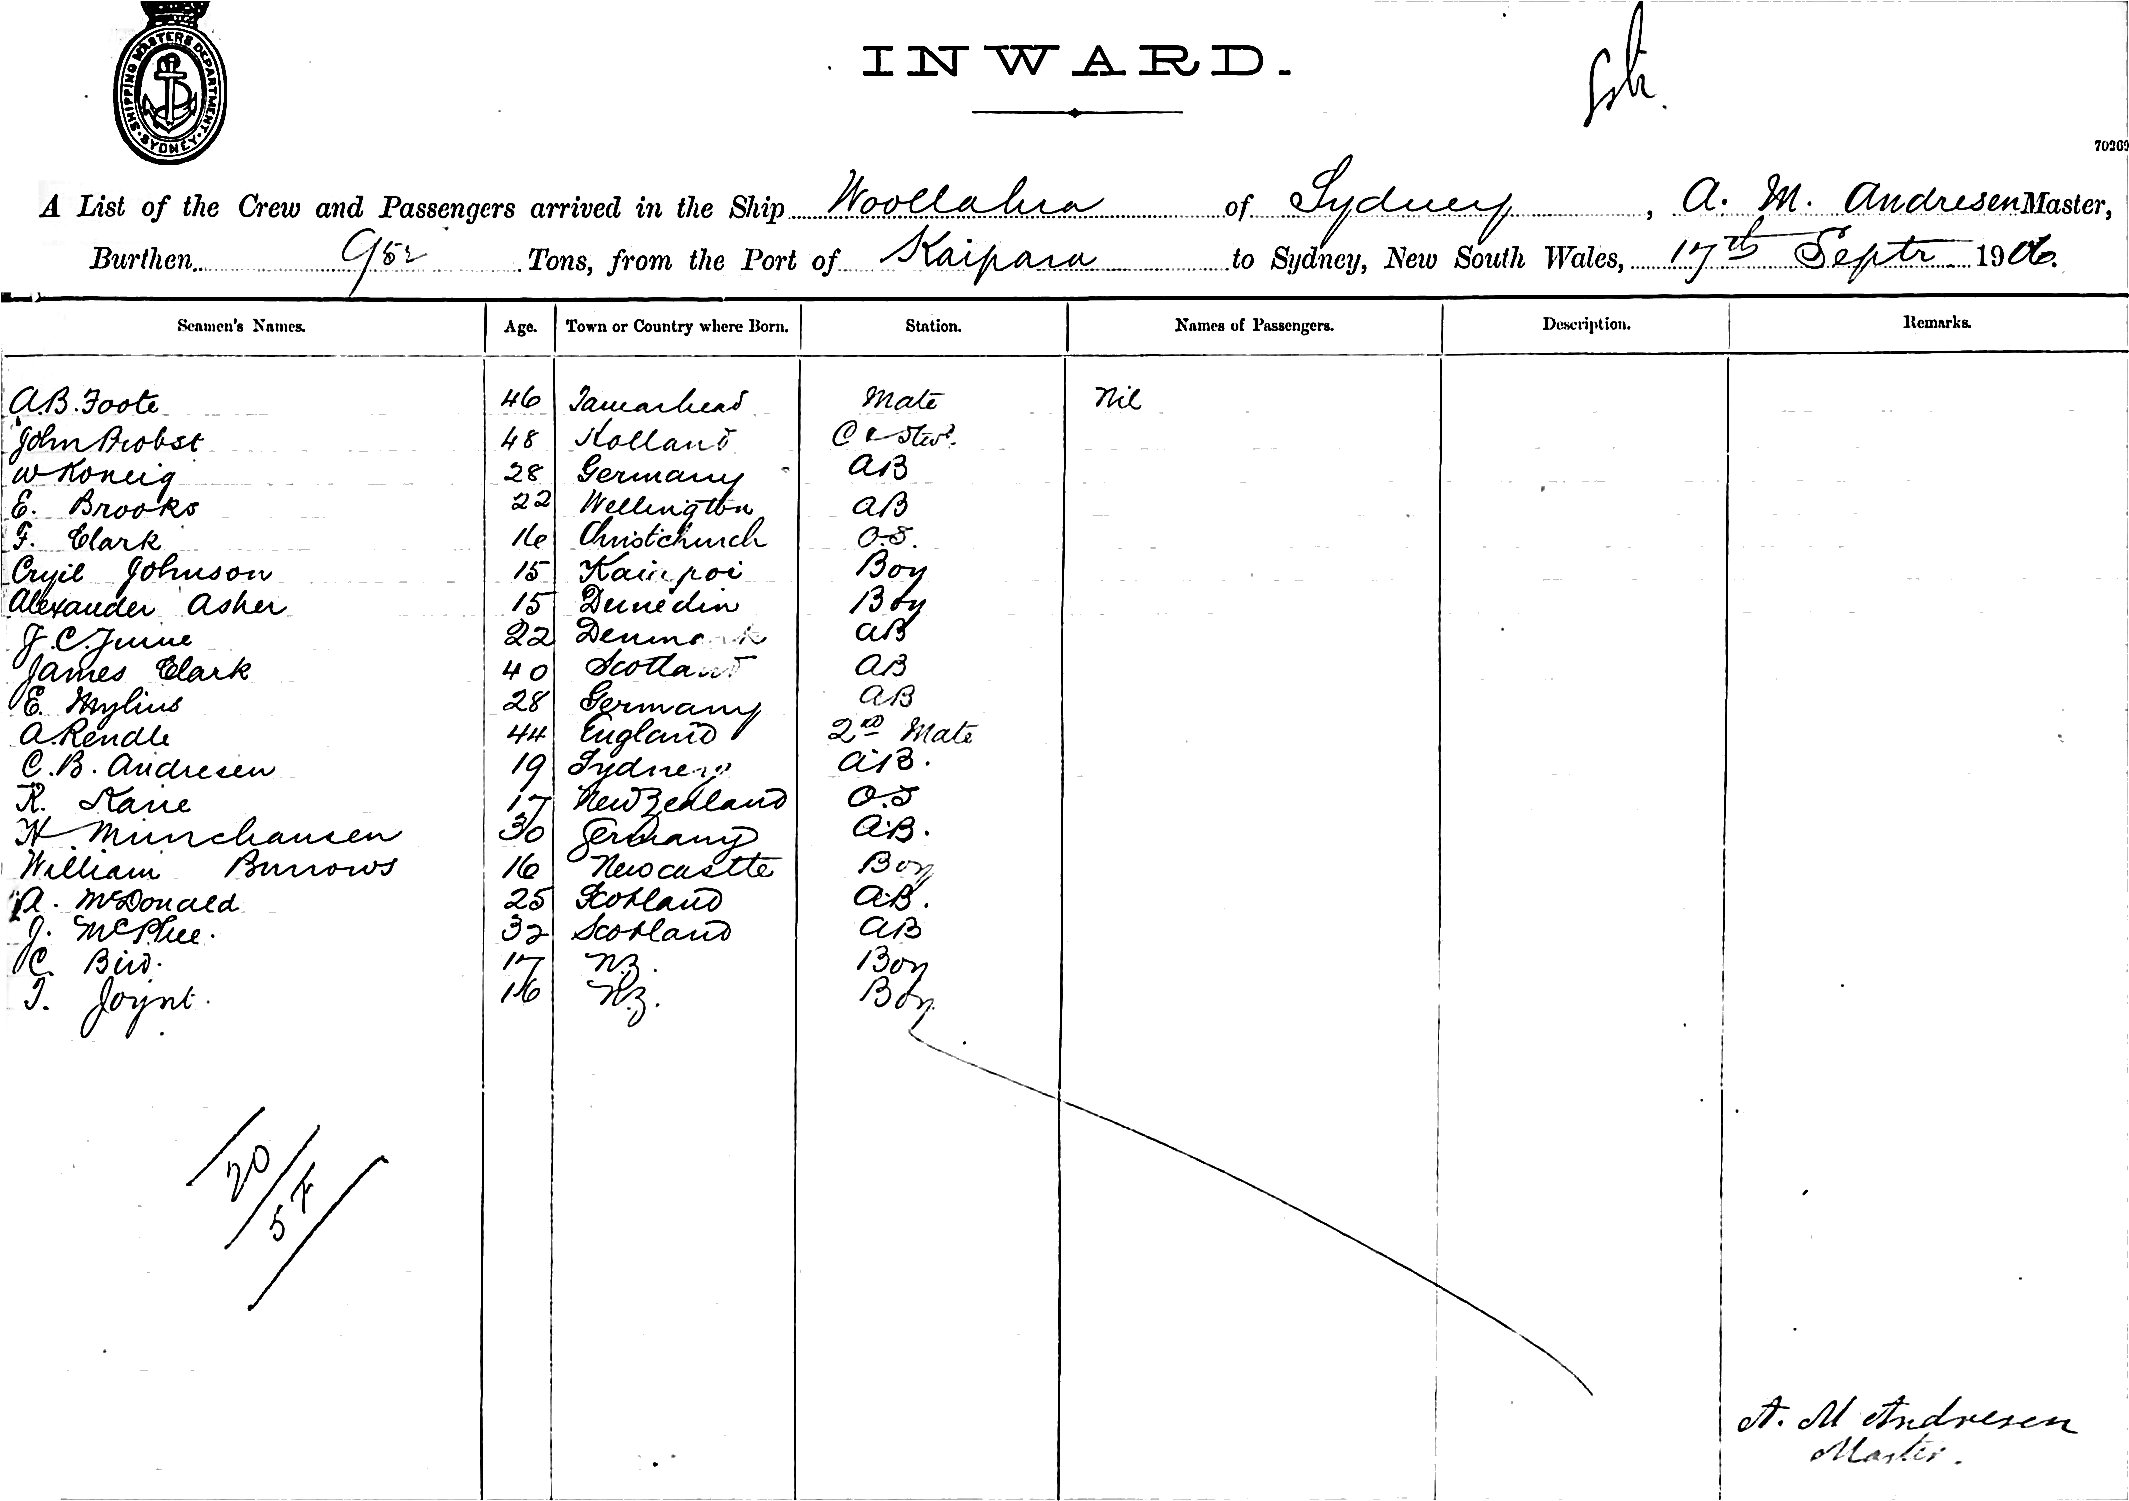 SHIPPING MASTERS DEPARTMENT · SYDNEY ·
INWARD.
70209
A List of the Crew and Passengers arrived in the Ship Woollahra of Sydney, A. M. Andresen Master,
Burthen 952 Tons, from the Port of Kaipara to Sydney, New South Wales, 17th Septr 1906.
Seamen's Names. Age. Town or Country where Born. Station. Names of Passengers. Description. Remarks.
A.B. Foote 46 Mate Nil
John Probst 48 Holland C & Stwd.
W Koneig 28 Germany AB
E. Brooks 22 Wellington AB
F. Clark 16 Christchurch O.S.
Cryil Johnson 15 Kaiapoi Boy
Alexander Asher 15 Dunedin Boy
J. C. 22 Denmark AB
James Clark 40 Scotland AB
E. Mylius 28 Germany AB
A. Rendle 44 England 2nd Mate
C. B. Andresen 19 Sydney A.B.
R. Kane 17 New Zealand O.S
H Munchausen 30 Germany A.B.
William Burrows 16 Newcastle Boy
A. McDonald 25 Scotland A.B.
J. McPhee. 32 Scotland AB
C. Bird. 17 N.Z. Boy
T. Joynt. 16 N.Z. Boy
20
5 F
A. M Andresen
Master.